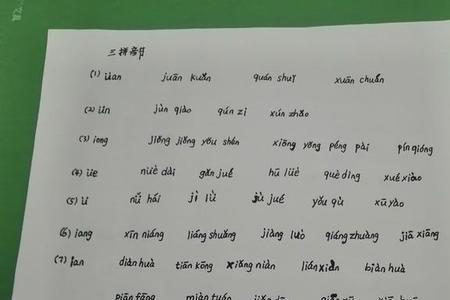 三拼音节
(1) üan juān kuǎn quán shuǐ xuān chuán
(2) ün jùn qiào qún zi xún zhǎo
(3) iong jiǒng jiǒng yǒu shén xiōng yǒng péng pài pín qióng
(4) üe nüè dài gǎn jué hū lüè què dìng xué xiào
(5) ü nǚ hái jì lǜ jù jué yǒu qù xū yào
(6) iang xīn niáng liáng shuǎng jiàng luò qiáng zhuàng jiā xiāng
(7) ian diàn huà tiān kōng xiǎng niàn lián xiàn biàn huà
piān fāng miàn tuán